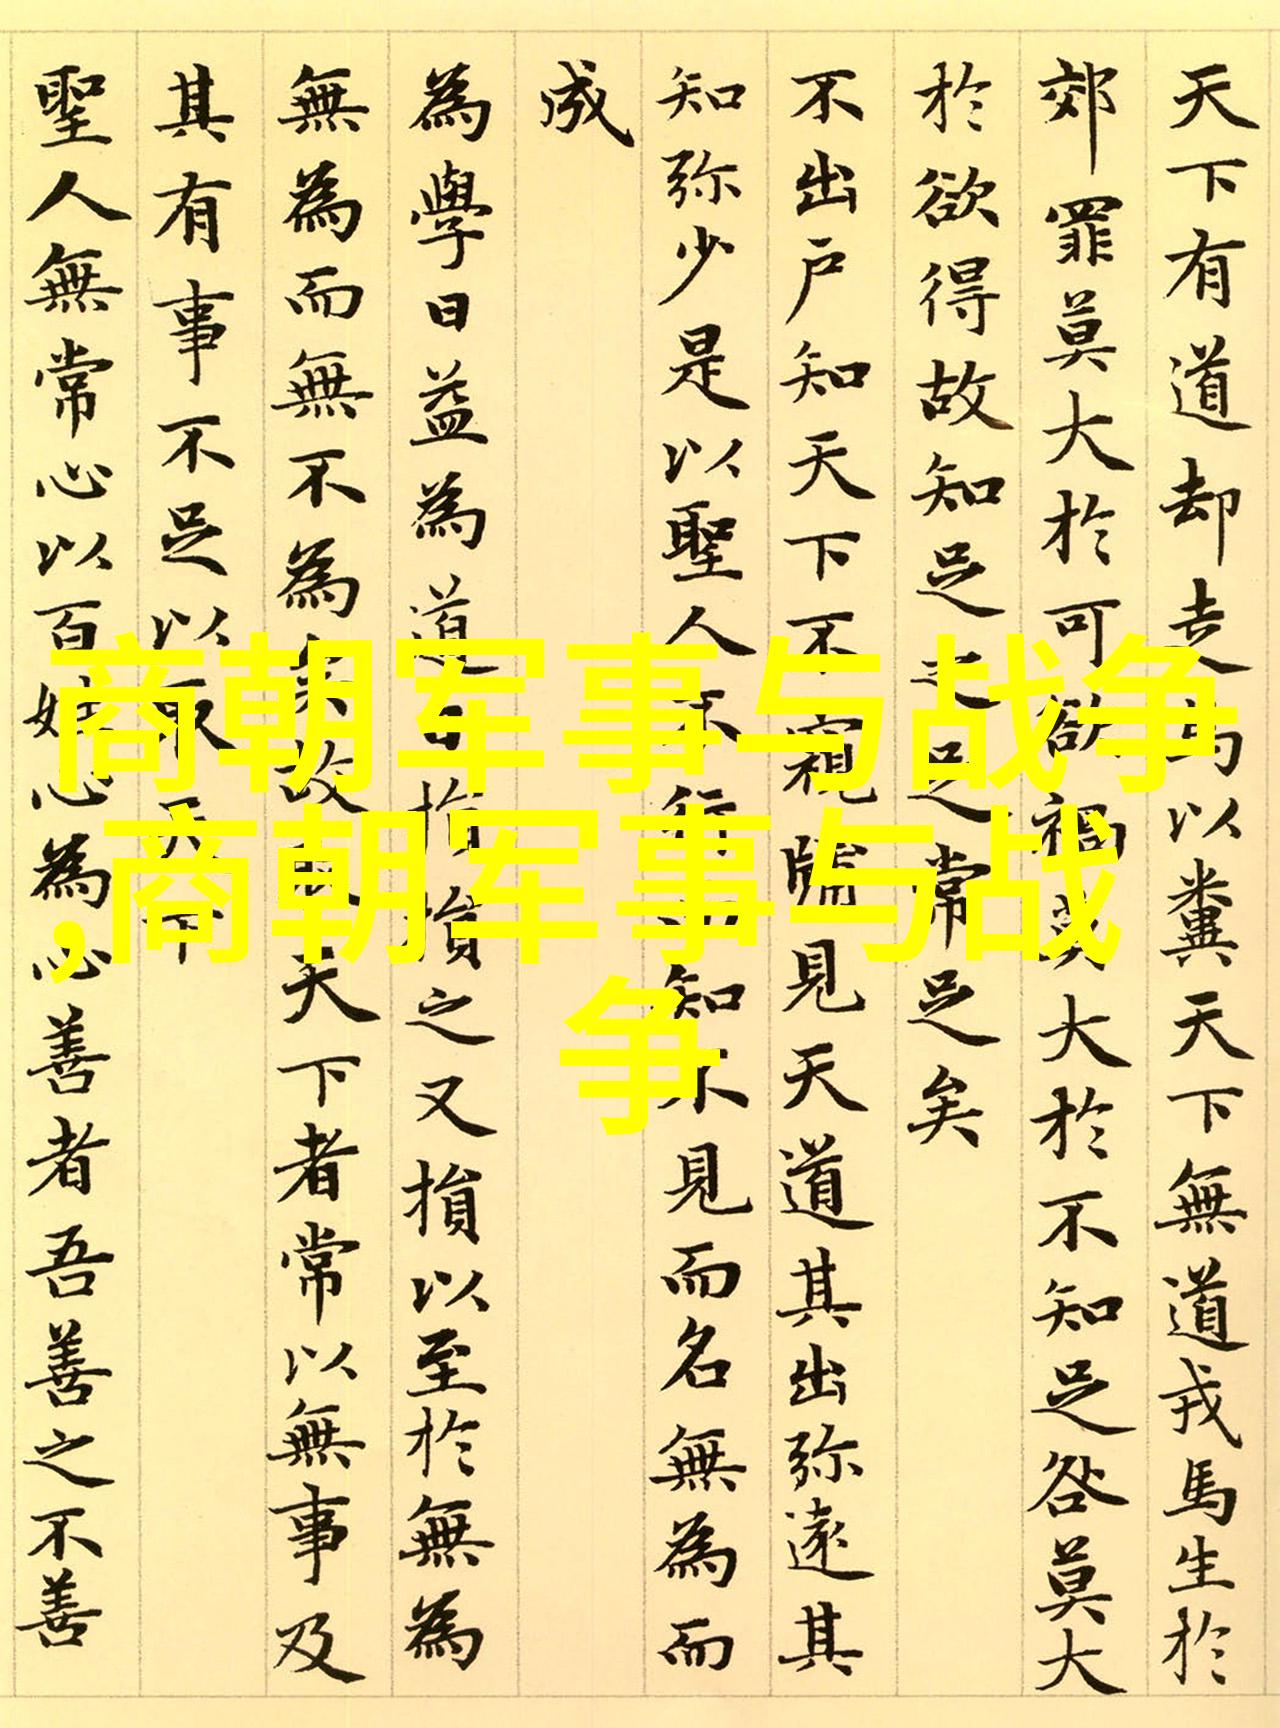 天下有道却走馬以糞天下無道戎馬生於
郊罪莫大於可欲禍莫大於不知足咎莫大
於欲得故知足之足常足矣
不出戶知天下不窺牖見天道其出弥遠其
知弥少是以聖人不行而知不見而名無為而
成
為學日益為道日損損之又損以至於無為
無為而無不為矣故取天下者常以無事及
其有事不足以取天下
聖人無常心以百姓心為心善者吾善之不善
商朝军事与战争
,商朝军事与战
争